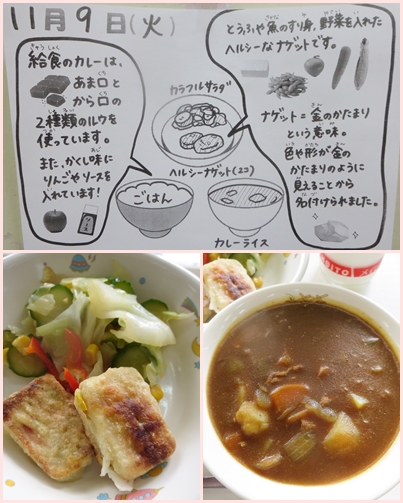 11月9日(火)
給食のカレーは、
きゅうしょく
あま口と
から口の
2種類のルウを
しゅるい
使っています。
つか
また、かくし味に
りんごやソースを
入れています!
カラフルサラダ
ヘルシーナゲット(2コ)
ごはん
カレーライス
とうふや魚のすり身、野菜を入れた
ヘルシーなナゲットです。
ナゲット=金のかたまり
という意味。
色や形が金の
かたまりのように
見えることから
名付けられました。